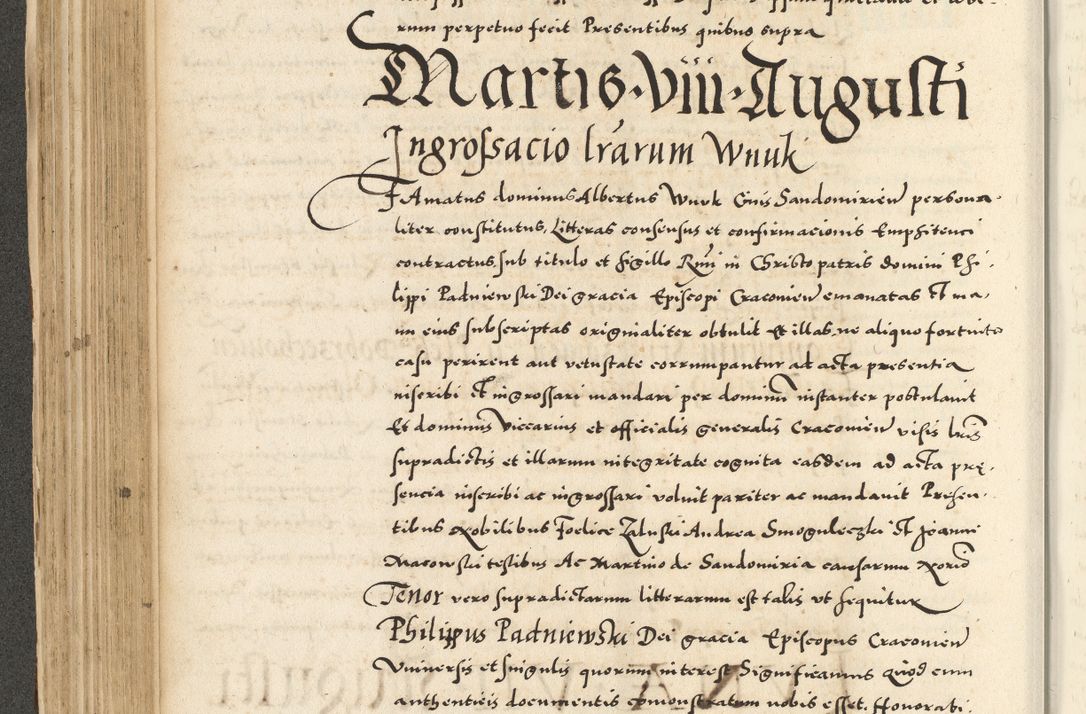 rum perpetuo fecit Presentibus quibus supra
Martis · viii · Augusti
Ingrossacio lrarum Wnuk
FAmatus dominus Albertus Wnuk Civis Sandomirien persona-
liter constitutus, Litteras consensus et confirmacionis Emphiteuci
contractus, sub titulo et sigillo Rmi in Christo patris domini Phi-
lippi Padniewski Dei gracia Episcopi Cracovien emanatas Et ma-
nu eius subscriptas originaliter obtulit Et illas, ne aliquo fortuito
casu perirent aut vetustate corrumpantur ad acta presentia
inscribi Et ingrossari mandari per dominum instanter postulavit
Et dominus Viccarius et officialis generalis Cracovien visis lris
supradictis et illarum integritate cognita easdem ad acta prę-
sencia inscribi ac ingrossari voluit pariter ac mandavit Presen-
tibus Nobilibus Foelice Zaluski Andrea Smoguleczki Et Joanne
Macowski testibus Ac Martino de Sandomiria causarum Norio
Tenor vero supradictarum litterarum est talis ut sequitur
Philippus Padniewski Dei gracia Episcopus Cracovien
Universis et singulis quorum interest Significamus Quod cum
authenticis documentis comonstratum nobis esset. Honorati